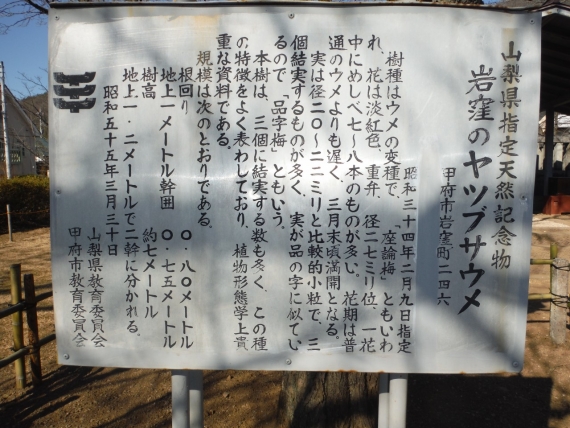 山梨県指定天然記念物
岩窪のヤツブサウメ
甲府市岩窪町二四六
昭和三十四年二月九日指定
樹種はウメの変種で、「座論梅」ともいわ
れ、花は淡紅色、重弁、径二七ミリ位、一花
中にめしべ七〜八本のものが多い。花期は普
通のウメよりも遅く、三月末頃満開となる。
実は径二〇〜二二ミリと比較的小粒で、三
個結実するものが多く、実が品の字に似てい
るので、「品字梅」ともいう。
本樹は、三個に結実する数も多く、この種
の特徴をよく表わしており、植物形態学上貴
重な資料である。
規模は次のとおりである。
根回り 〇・八〇メートル
地上一メートル幹囲 〇・七五メートル
樹高 約七メートル
地上一・二メートルで二幹に分かれる。
昭和五十五年三月三十日
山梨県教育委員会
甲府市教育委員会